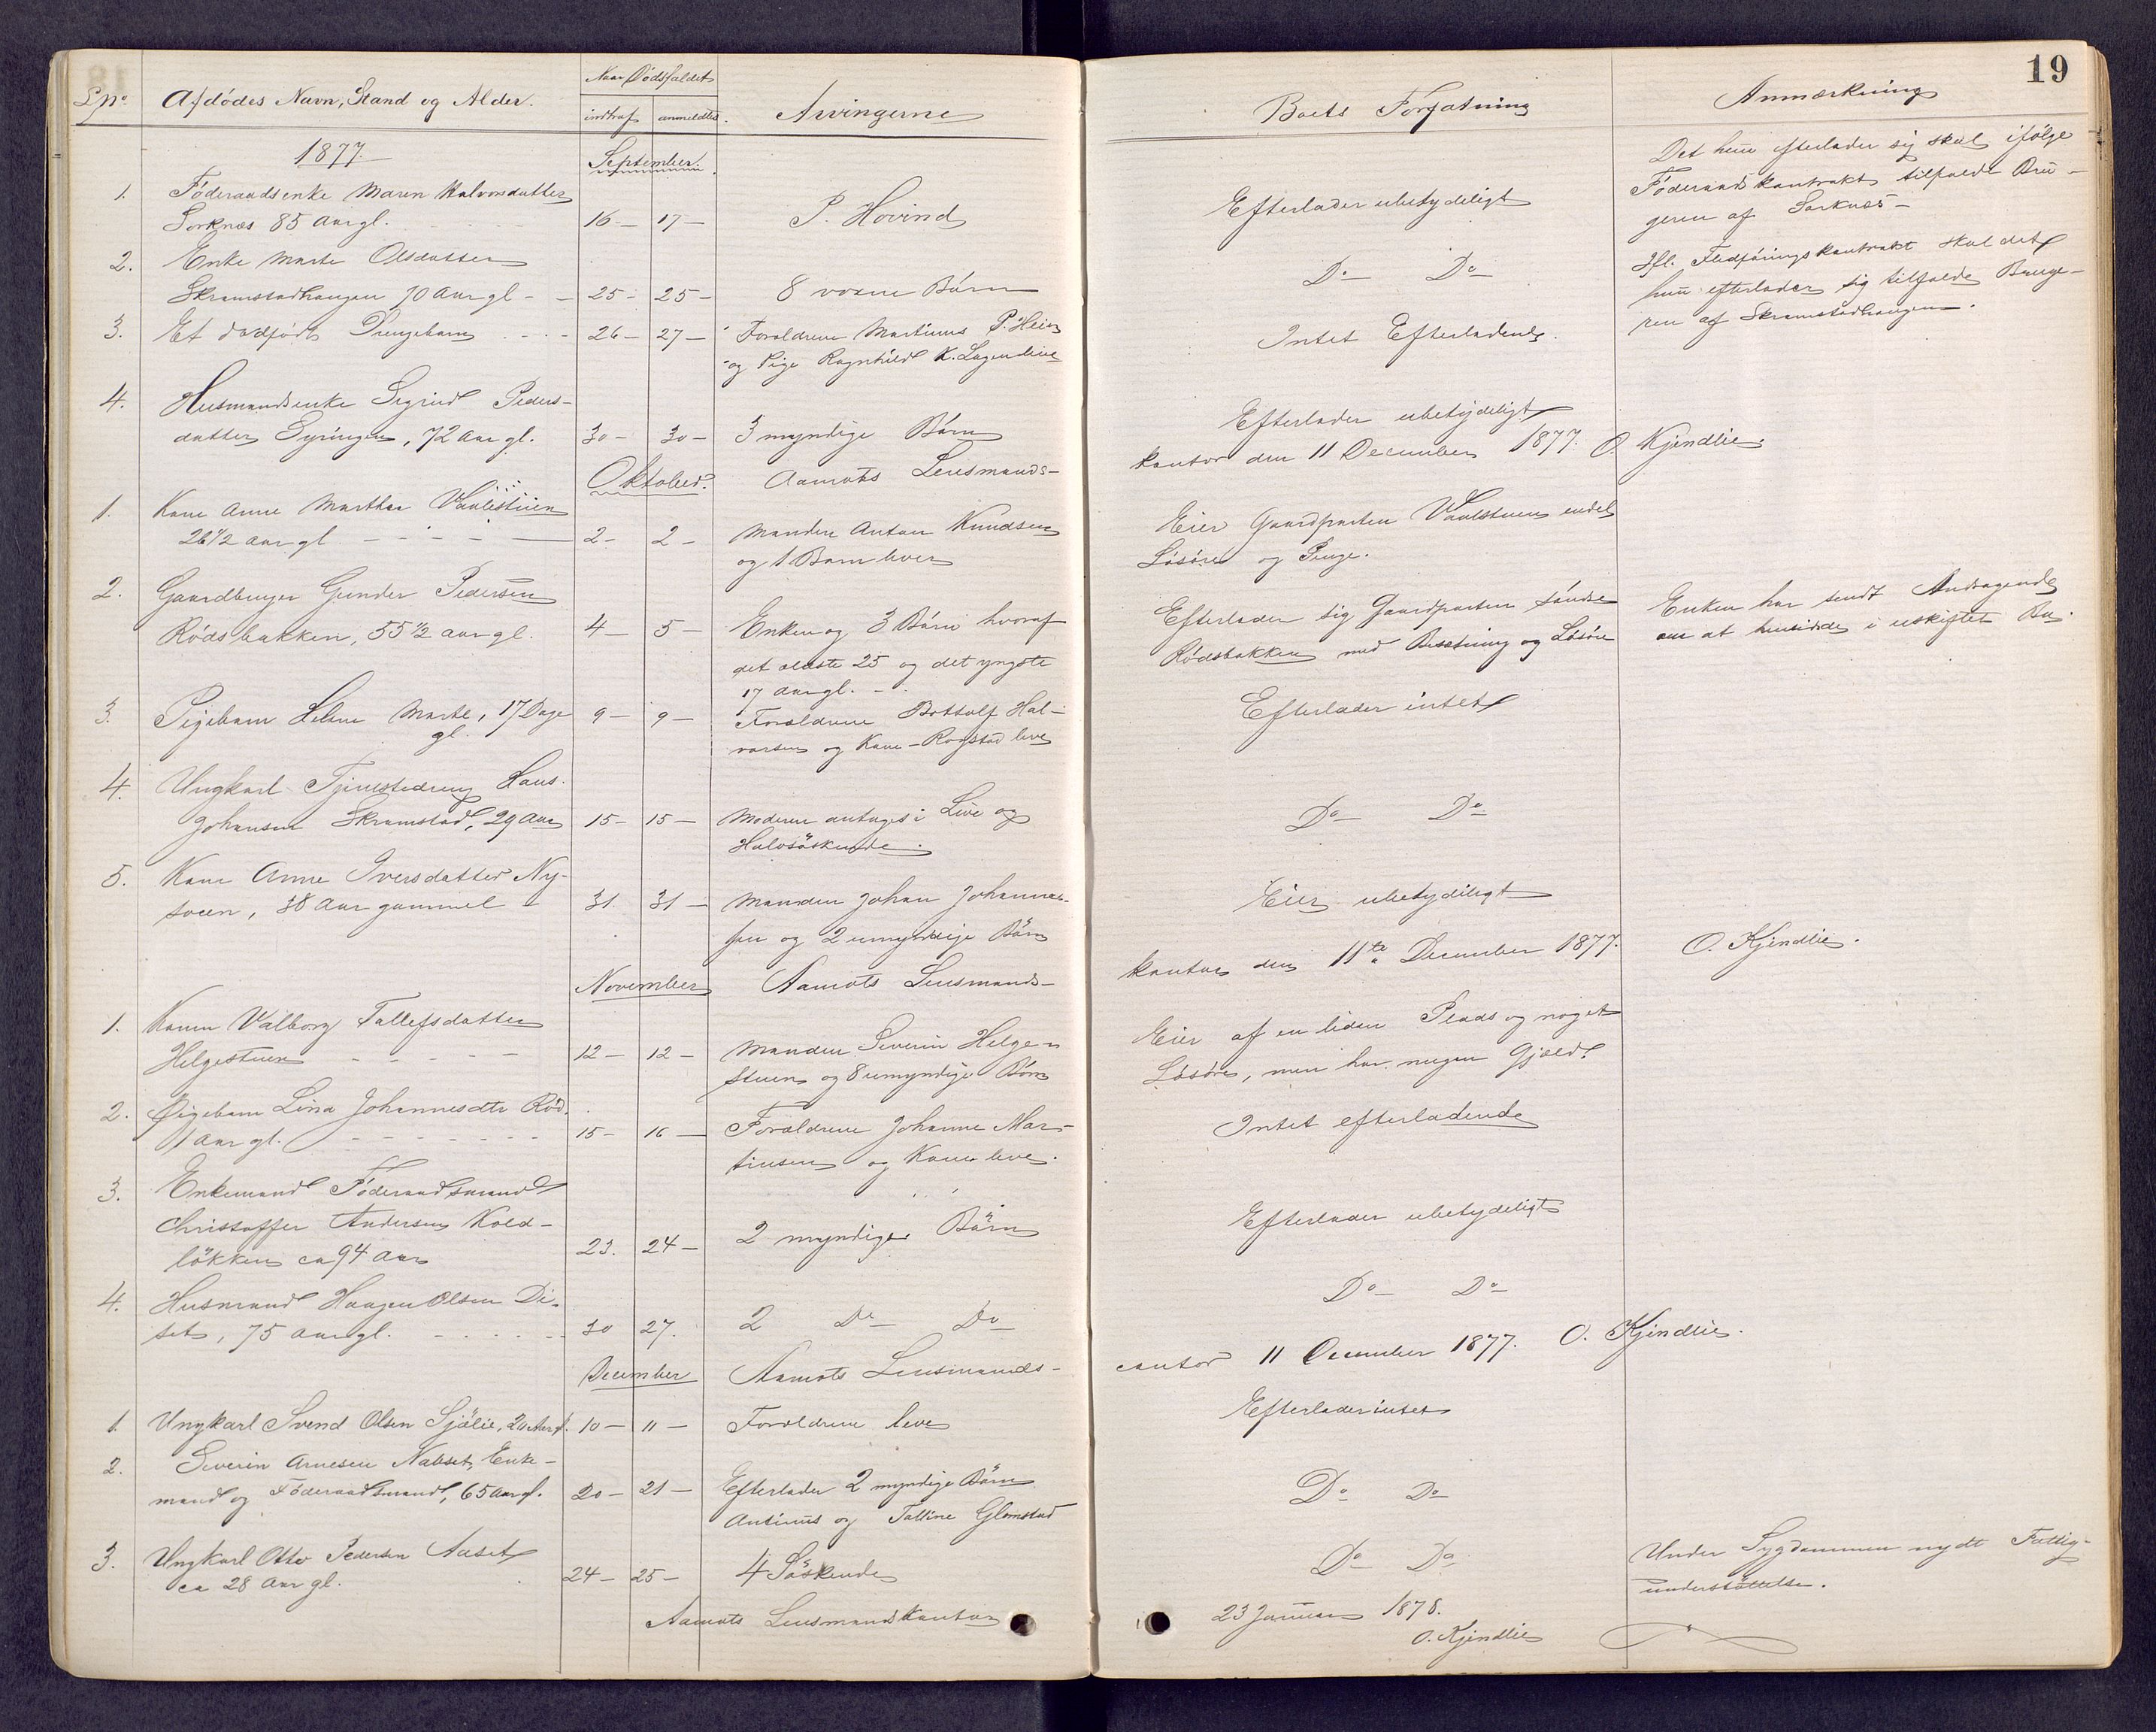 19
Lno Afdødes Navn, Stand og Alder. Naar Dødsfaldet Arvingerne Boets Forfatning Anmærkning
indtraf anmeldtes.
1877. September.
1. Føderaadsenke Maren Halvorsdatter
Sorknæs 85 Aar gl. 16 - 17 - P. Hovind Efterlader ubetydeligt
Det hun efterlader sig skal ifølge
Føderaadskontrakt tilfalde Bru-
geren af Sorknæs -
2. Enke Marte Olsdatter
Skramstadhaugen 70 Aar gl - - 25 - 25 - 8 voxne Børn Do Do
Ifl. Fledføringskontrakt skal det
hun efterlader sig tilfalde Bruge-
ren af Skramstadhaugen.
3. Et dødfødt Drengebarn - - - 26 - 27 - Forældrene Martinus P. Heien Intet Efterladende.
og Pige Ragnhild K. leve
4. Husmandsenke Sigrid Peders-
datter Syringen, 72 Aar gl. 30 - 30 - 3 myndige Børn Efterlader ubetydeligt
Oktober. Aamots Lensmands-
kontor den 11 December 1877. O. Kjendlie.
1. Kone Anne Marthea Vaalestuen
26 1/2 aar gl - - - - 2 - 2 - Manden Anton Knudsen
og 1 Barn lever
Eier Gaardparten Vaalstuen endel
Løsøre og Penge.
2. Gaardbruger Gunder Pedersen
Rødsbakken, 55 1/2 aar gl. 4 - 5 - Enken og 3 Børn hvoraf
det ældste 25 og det yngste
17 Aar gl. -
Efterlader sig Gaardparten søndre
Rødsbakken med Besætning og Løsøre
Enken har sendt Andragende
om at hensidde i uskiftet Bo.
3. Pigebarn Helene Marte, 17 Dage
gl. 9 - 9 - Forældrene Bottolf Hal-
vorsen og Kone - Rogstad leve
Efterlader intet
4. Ungkarl Tjenestedreng Hans
Johansen Skramstad, 29 Aar 15 - 15 - Moderen antages i Live og
Halvsøskende.
Do Do
5. Kone Anne Iversdatter Ny-
soen, 38 Aar gammel - 31. 31 - Manden Johan Johannes-
sen og 2 umyndige Børn
Eier ubetydeligt
November Aamots Lensmands-
kontor den 11te December 1877. O. Kjendlie.
1. Konen Valborg Tollefsdatter
Helgestuen - - - - 12 - 12 - Manden Severin Helge-
stuen og 8 umyndige Børn
Eier af en liden Plads og noget
Løsøre, men har megen Gjæld.
2. Pigebarn Lina Johannesdtr Rød.
1 Aar gl. - - - - - - 15 - 16 - Forældrene Johannes Mar-
tinsen og Kone leve.
Intet efterladende
3. Enkemand Føderaadsmand
Christoffer Andersen Kold-
løkken ca 94 Aar 23. 24 - 2 myndige Børn Efterlader ubetydeligt
4. Husmand Haagen Olsen Di-
set, 75 Aar gl. - - - - - 30 27. 2 Do Do Do Do
December Aamots Lensmands-
contor 11 December 1877. O. Kjendlie.
1. Ungkarl Svend Olsen Sjølie, 20 Aar gl. 10 - 11 - Forældrene leve Efterlader intet
2. Severin Arnesen Nabset, Enke-
mand og Føderaadsmand, 65 Aar gl. 20 - 21 - Efterlader 2 myndige Børn
Antinus og Talline Glomstad
Do Do
3. Ungkarl Otto Pedersen Aaset
ca 28 Aar gl. 24 - 25 - 4 Søskende Do Do
Under Sygdommen nydt Fattig-
understøttelse.
Aamots Lensmandskontor 23 Januar 1878.
O. Kjendlie